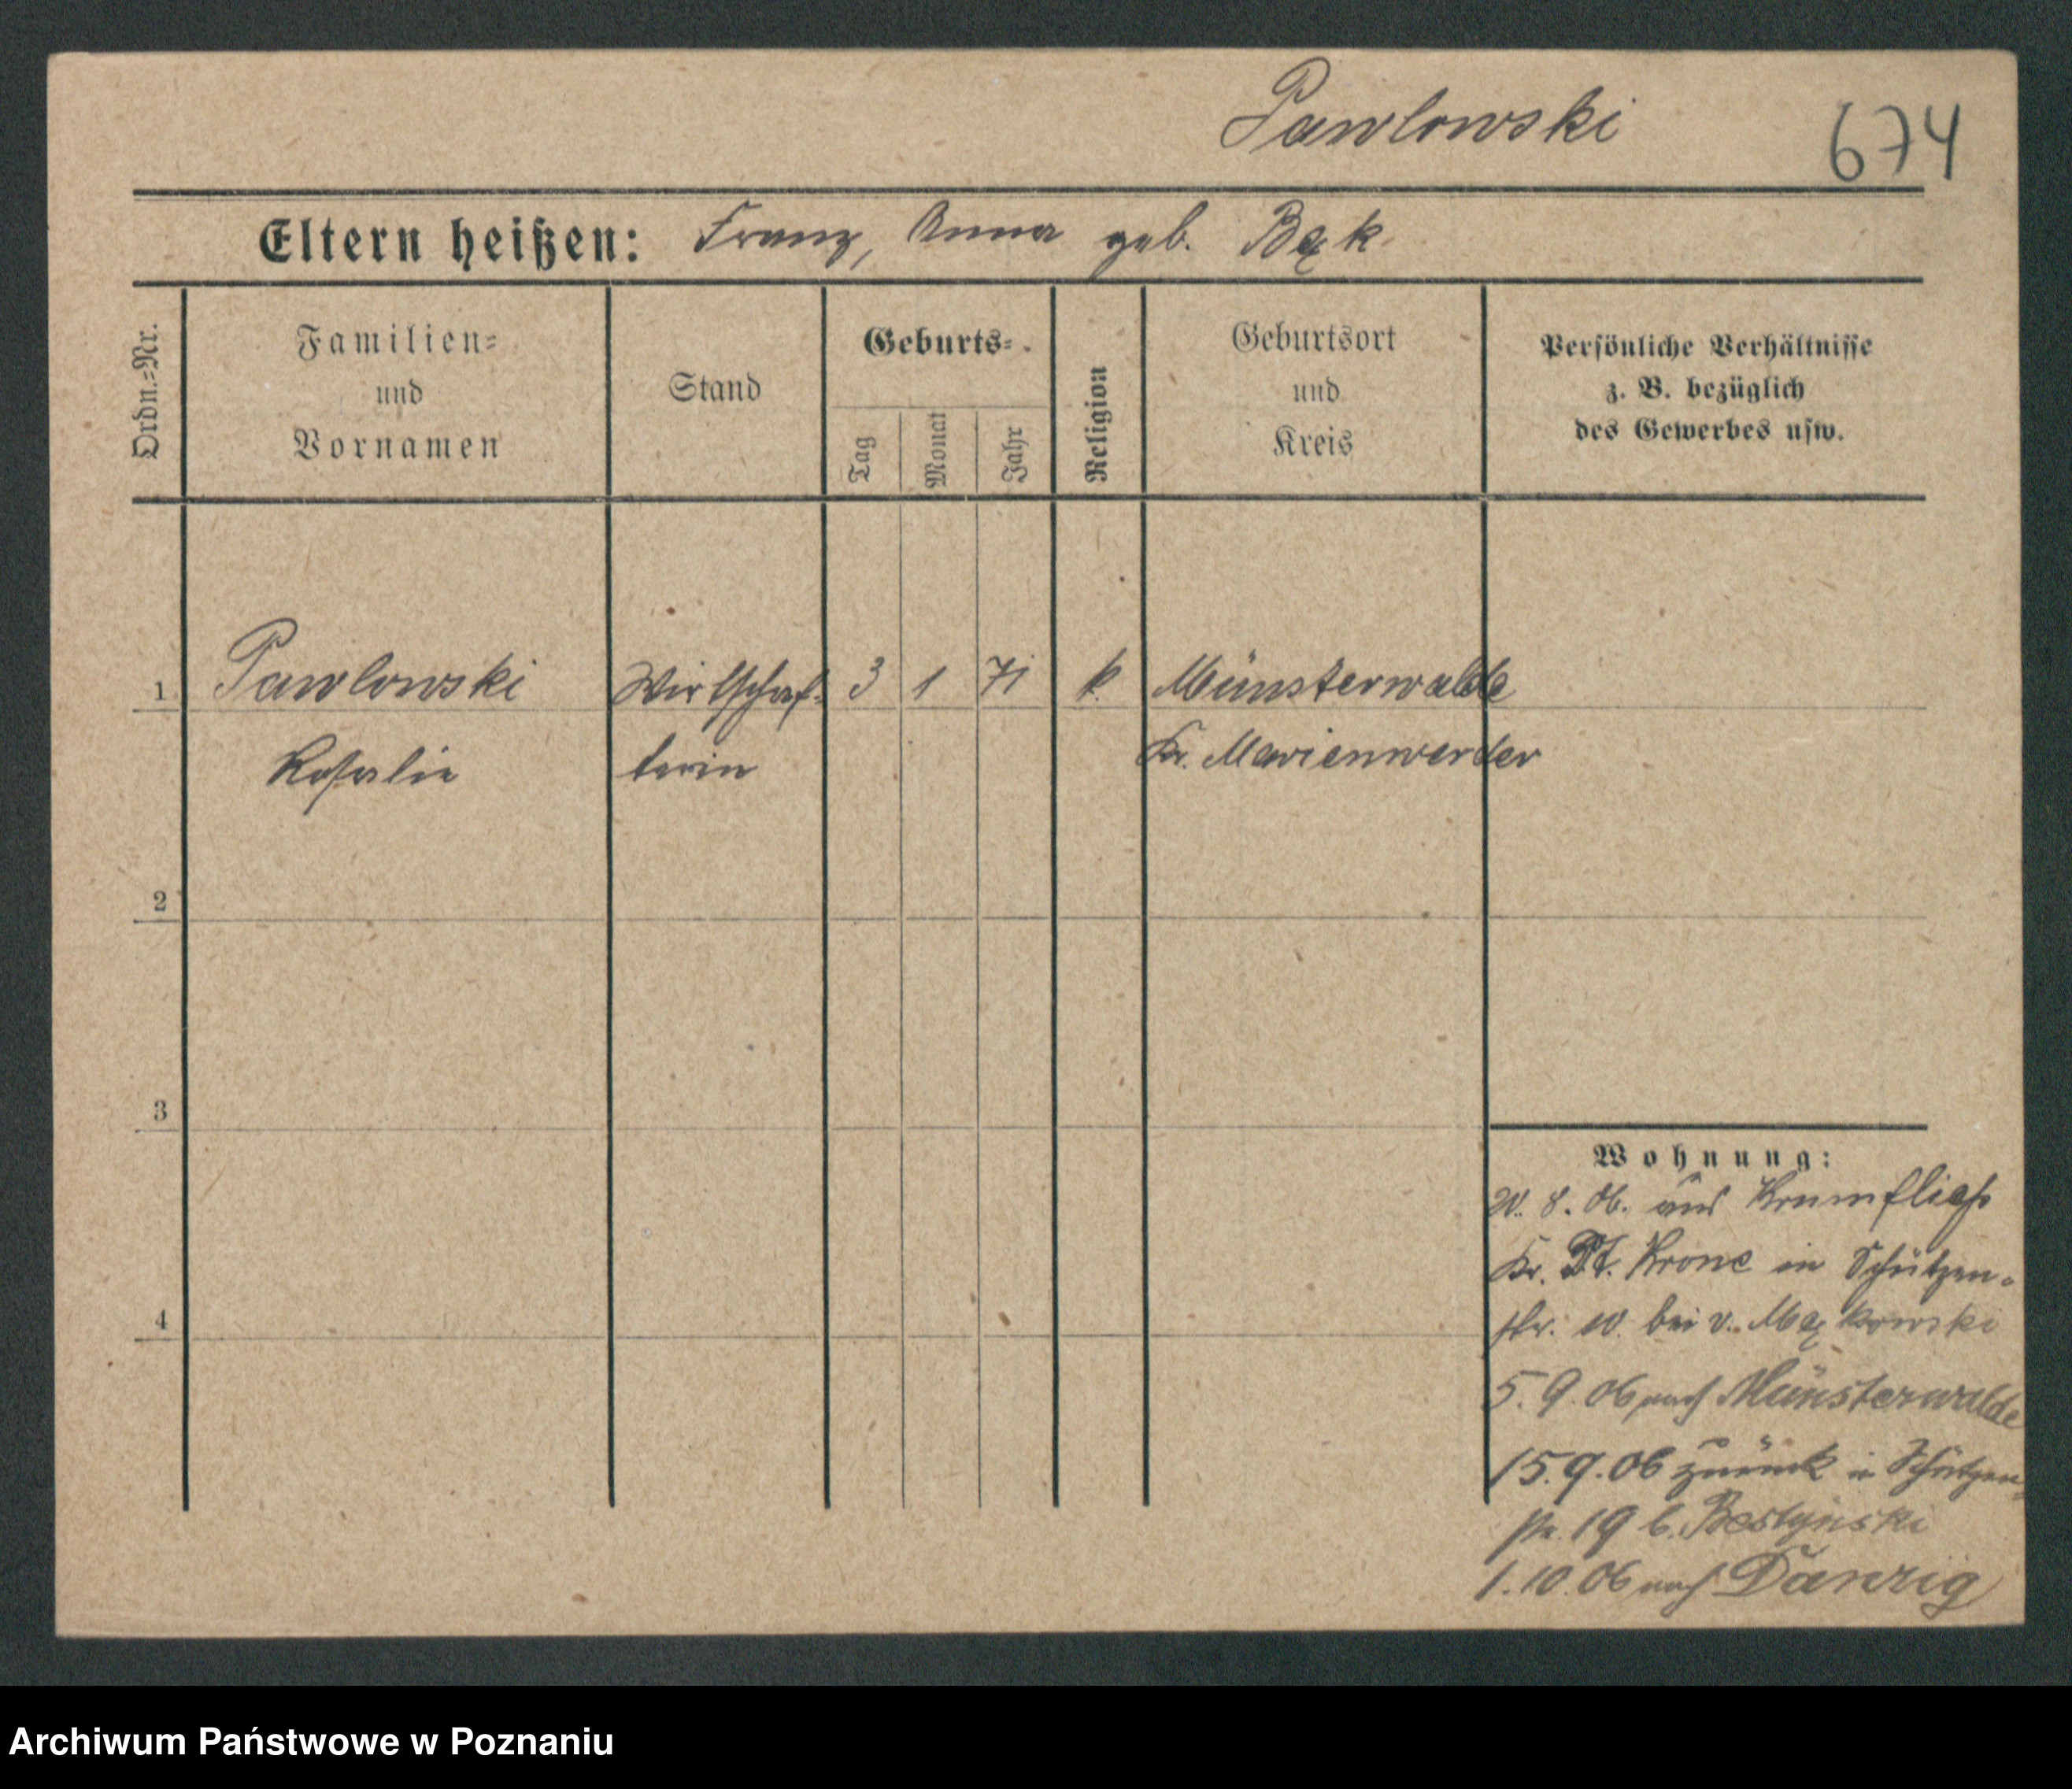 Pawlowski
674
Eltern heißen: Franz, Anna geb. Bąk
Ordn.-Nr.
Familien-
und
Vornamen
Stand
Geburts-
Tag
Monat
Jahr
Religion
Geburtsort
und
Kreis
Persönliche Verhältnisse
z. B. bezüglich
des Gewerbes usw.
1 Pawlowski Wirtschaf- 3 1 71 k. Münsterwalde
Rosalie terin Kr. Marienwerder
2
3
4
Wohnung:
8. 06. aus Krumfließ
Kr. Dt. Krone in Schützen-
str. 10. bei v. Mąkowski
5. 9. 06 nach Münsterwalde
15. 9. 06 zurück in Schützen-
str. 19 b. Bestyński
1. 10. 06 nach Danzig
Archiwum Państwowe w Poznaniu